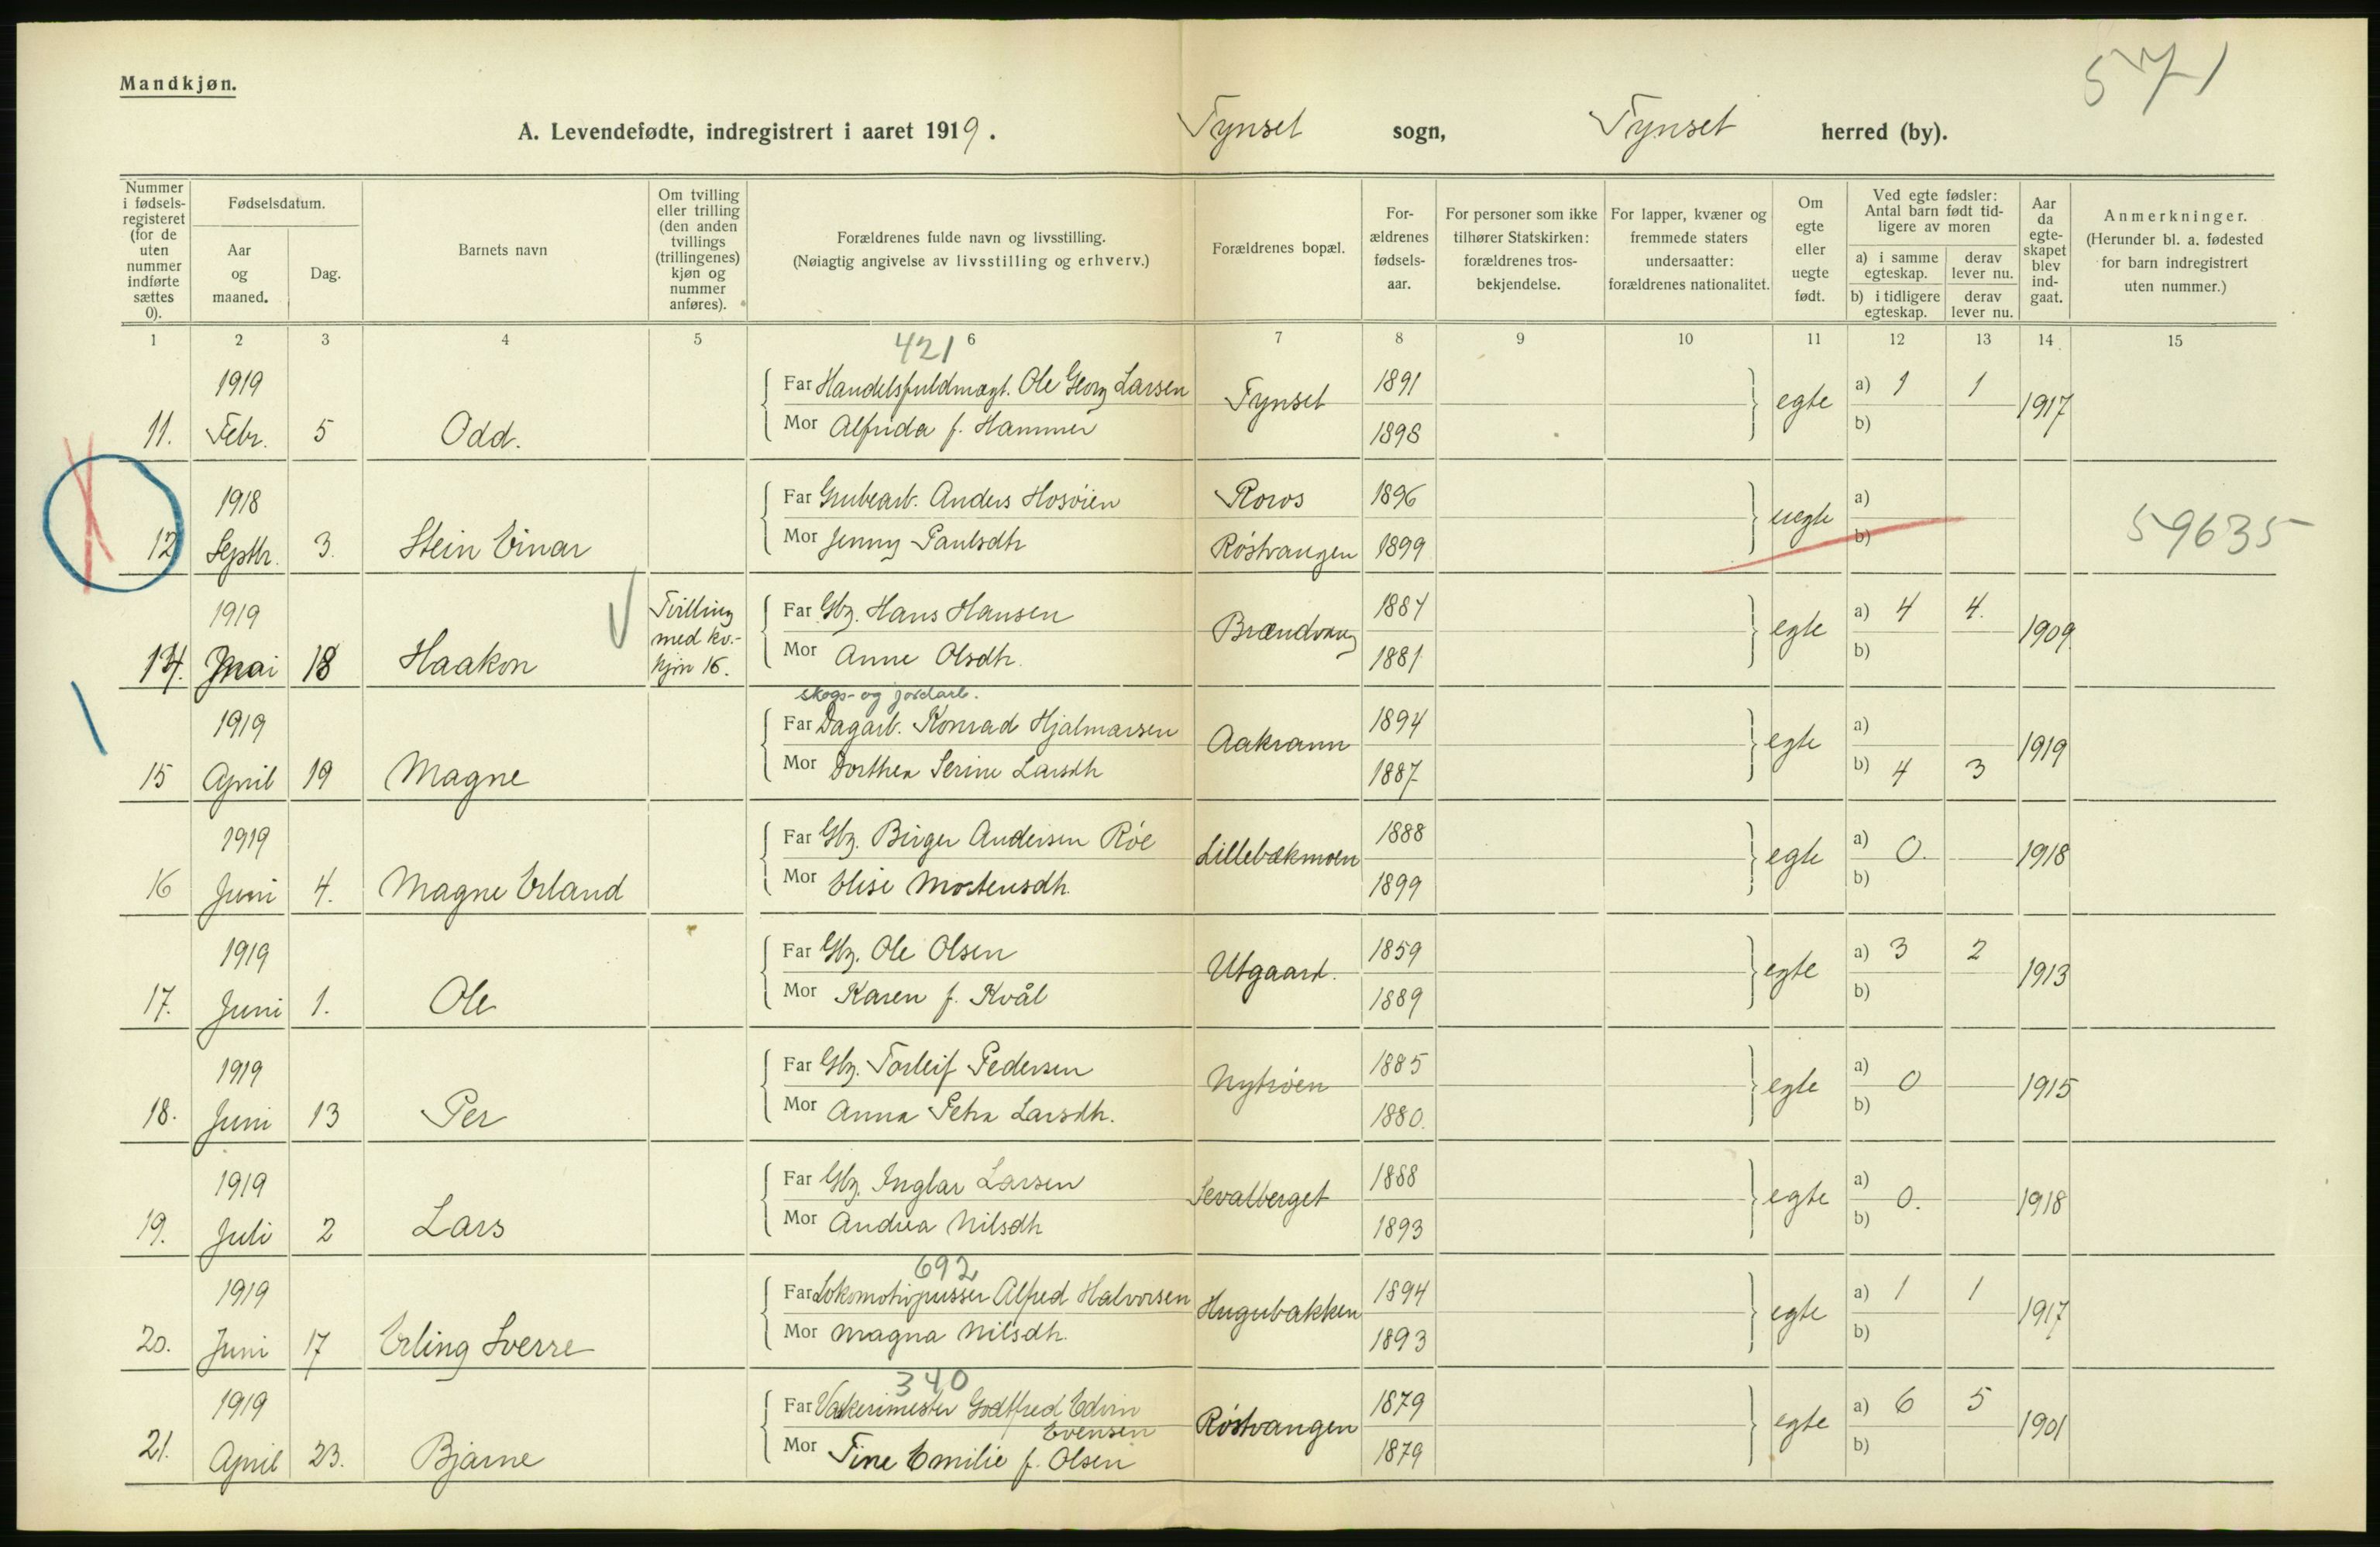 571
Mandkjøn.
A. Levendefødte, indregistrert i aaret 1919. Tynset sogn, Tynset herred (by).
Nummer i fødsels-registeret (for de uten nummer indførte sættes 0).
Fødselsdatum.
Aar og maaned.
Dag.
Barnets navn
Om tvilling eller trilling (den anden tvillings (trillingenes) kjøn og nummer anføres).
Forældrenes fulde navn og livsstilling.
(Nøiagtig angivelse av livsstilling og erhverv.)
Forældrenes bopæl.
For-ældrenes fødsels-aar.
For personer som ikke tilhører Statskirken: forældrenes tros-bekjendelse.
For lapper, kvæner og fremmede staters undersaatter: forældrenes nationalitet.
Om egte eller uegte født.
Ved egte fødsler: Antal barn født tid-ligere av moren
a) i samme egteskap. derav lever nu.
b) i tidligere egteskap. derav lever nu.
Aar da egte-skapet blev ind-gaat.
Anmerkninger.
(Herunder bl. a. fødested for barn indregistrert uten nummer.)
1 2 3 4 5 6 7 8 9 10 11 12 13 14 15
421
1919 Far Handelsfuldmægt. Ole Georg Larsen 1891 a) 1 1
11. Febr. 5 Odd. Mor Alfrida f. Hammer Tynset 1898 egte b) 1917
1918 Far Grubearb. Anders Hosöien Røros 1896 a)
12 Septbr. 3. Stein Einar Mor Jenny Paulsdtr Röstvangen 1899 uegte b) 59635
1919 Tvilling med kv.-kjøn 16. Far Gbr. Hans Hansen 1884 a) 4 4.
14. Mai 18 Haakon Mor Anne Olsdtr. Brændvang 1881 egte b) 1909
skogs- og jordarb.
1919 Far Dagarb. Konrad Hjalmarsen 1894 a)
15 April 19 Magne Mor Dorthea Serine Larsdtr Aakrann 1887 egte b) 4 3 1919
1919 Far Gbr. Birger Andersen Röe 1888 a) 0.
16 Juni 4. Magne Erland Mor Elise Mortensdtr. Lillebækmoen 1899 egte b) 1918
1919 Far Gbr. Ole Olsen 1859 a) 3 2
17. Juni 1. Ole Mor Karen f. Kvål Utgaard. 1889 egte b) 1913
1919 Far Gbr. Torleif Pedersen 1885 a) 0
18. Juni 13 Per Mor Anna Petra Larsdtr. Nytröen 1880. egte b) 1915
1919 Far Gbr. Inglar Larsen 1888 a) 0.
19. Juli 2 Lars Mor Andrea Nilsdtr Sevalberget 1893 egte b) 1918
692
1919 Far Lokomotivpusser Alfred Halvorsen 1894 a) 1 1
20. Juni 17 Erling Sverre Mor Magna Nilsdtr. Hugubakken 1893 egte b) 1917
340
1919 Far Vaskerimester Godtfred Edvin Evensen 1879 a) 6 5
21. April 23. Bjarne Mor Tine Emilie f. Olsen Röstvangen 1879 egte b) 1901